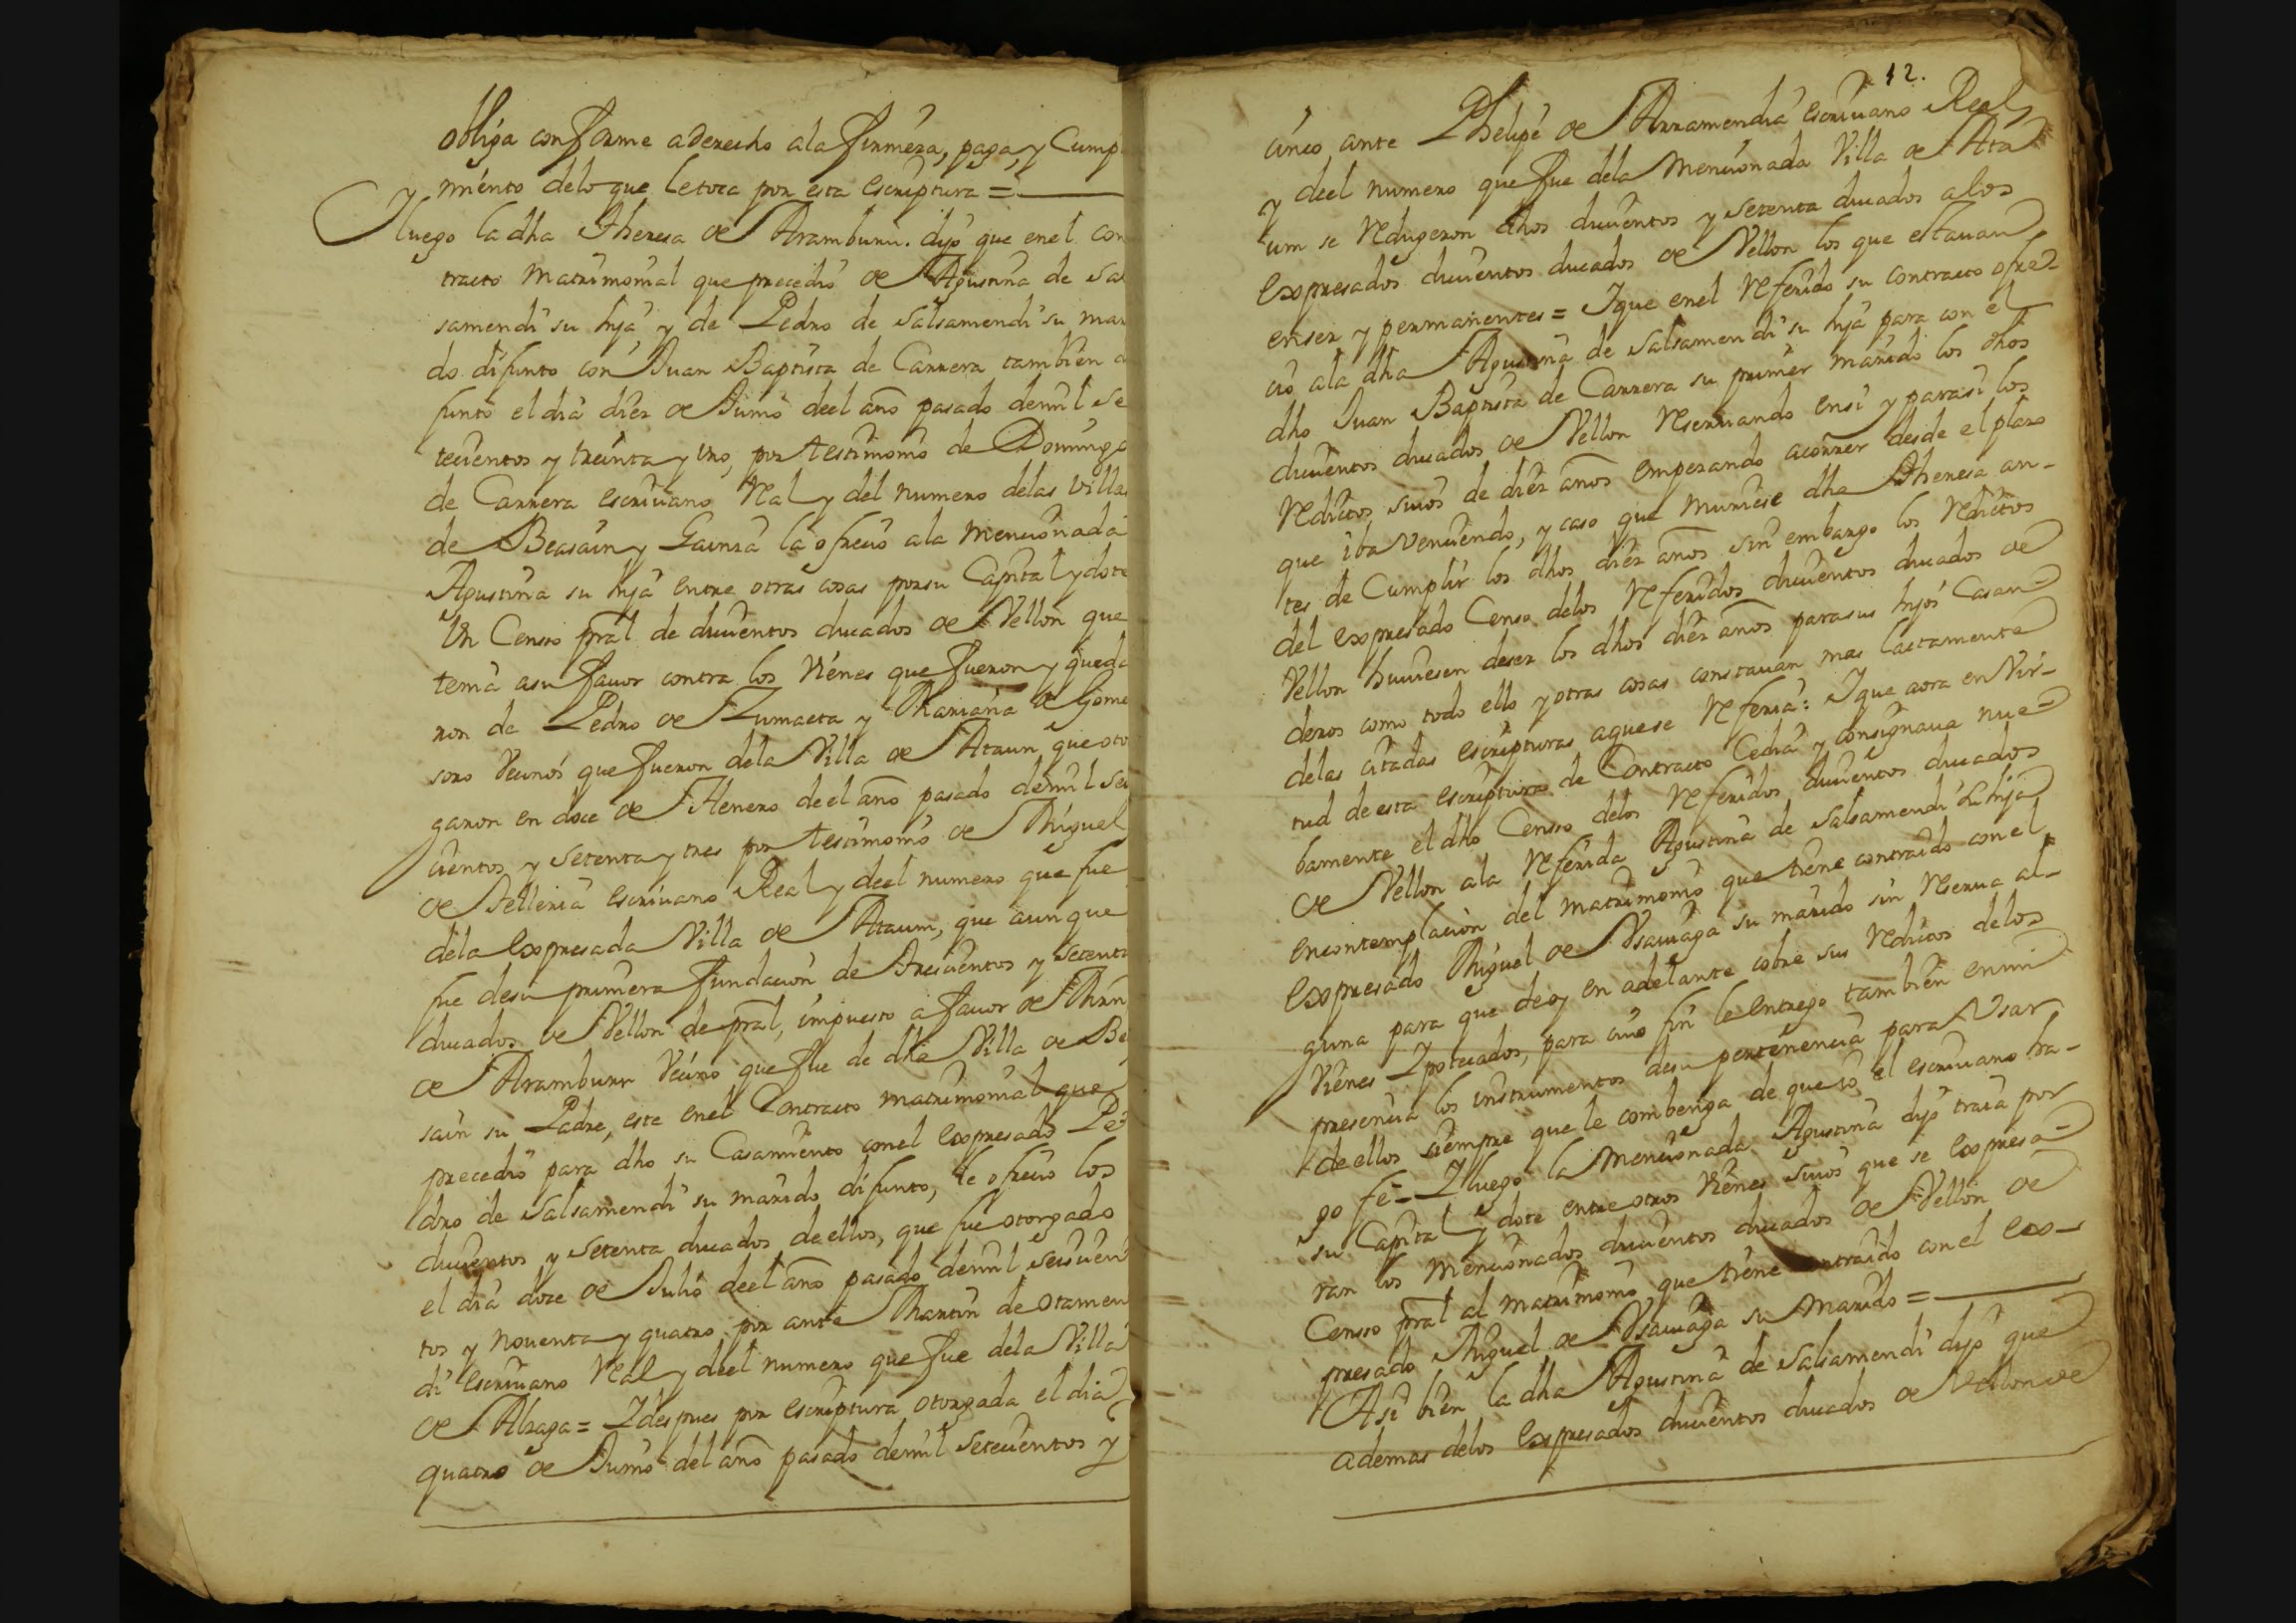 obliga conforme a derecho ala firmeza, paga, y Cump
miento delo que le toca por esta escriptura =
Y luego la dha Theresa de Aramburu. dijo que enel con
tracto matrimonial que precedio de Agustina de Sal
samendi su hija, y de Pedro de Salsamendi su mari
do difunto con Juan Baptista de Carrera tambien di
funto el dia diez de Junio deel año pasado demil Se
tecientos y treinta y uno, por testimonio de Domingo
de Carrera escriuano Real y del numero delas villas
de Beasain y Gainza la ofrecio ala mencionada
Agustina su hija entre otras cosas por su Capital y dote
Un Censso pral de ducientos ducados de Vellon que
tenia asu fauor contra los Vienes que fueron y queda
ron de Pedro de Zumaeta y Mariana de Gome
soro Vecinos que fueron dela Villa de Ataun que otor
garon en doce de Henero deel año pasado demil seis
cientos y setenta y tres por testimonio de Miguel
de Telleria escriuano Real y deel numero que fue
dela expresada Villa de Ataum, que aunque
fue desu primera fundacion de Trescientos y setenta
ducados de Vellon de pral, impuesto a fauor de Mrn
de Aramburu Vecino que fue de dha Villa de Be
sain su Padre, este enel Contracto matrimonial que
precedio para dho su Casamiento conel expresado Pe
dro de Salsamendi su marido difunto, le ofrecio los
ducientos y setenta ducados deellos, que fue otorgado
el dia doce de Julio deel año pasado demil seiscien
tos y nouenta y quatro por ante Martin de Otamen
di escriuano Real y deel numero que fue dela Villa
de Alzaga = Y despues por escriptura otorgada el dia
quatro de Junio del año pasado demil setecientos y
12.
cinco ante Phelipe de Arramendia escriuano Real
y deel numero que fue dela mencionada Villa de Ata
um se redugeron dhos ducientos y setenta ducados alos
expresados ducientos ducados de Vellon los que estauan
enser y permanentes = Y que enel referido su contracto ofre-
cio ala dha Agustina de Salsamendi su hija para con el
dho Juan Baptista de Carrera su primer marido los dhos
ducientos ducados de Vellon reseruando ensi y parasi los
redictos suios de diez años empezando acorrer desde el plazo
que iba venciendo, y caso que muriese dha Theresa an-
tes de Cumplir los dhos diez años sin embargo los redictos
del expresado Censo delos referidos ducientos ducados de
Vellon huuiesen deser los dhos diez años parasus hijos Casan
deros como todo ello y otras cosas constauan mas lactamente
delas citadas escripturas aquese referia: Y que aora en Vir-
tud de esta escriptura de Contracto Cedia y consignaua nue-
bamente el dho Censso delos referidos ducientos ducados
de Vellon ala referida Agustina de Salsamendi su hija
encontemplacion del matrimonio que tiene contraido con el
expresado Miguel de Ysauaga su marido sin reserua al-
guna para que deoy en adelante cobre sus redictos delos
Vienes Ypotecados, para cuio fin le entrego tambien enmi
presencia los instrumentos desu pertenencia para Vsar
deellos siempre que le combenga de que io el escriuano ha-
go fe = Y luego la mencionada Agustina dijo traia por
su Capital y dote entre otros Vienes suios que se expresa-
ran los mencionados ducientos ducados de Vellon de
Censso pral al matrimonio que tiene contraido con el ex-
presado Miguel de Ysauaga su marido =
Asi bien la dha Agustina de Salsamendi dijo que
ademas delos expresados ducientos ducados de Vellon de